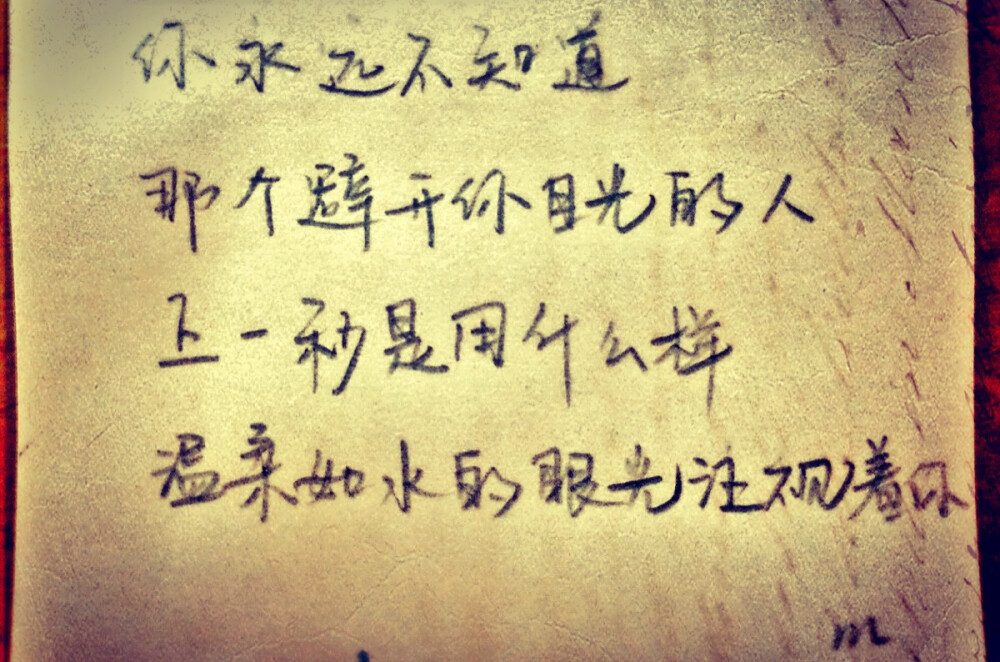 你永远不知道
那个避开你目光的人
上一秒是用什么样
温柔如水的眼光注视着你
m